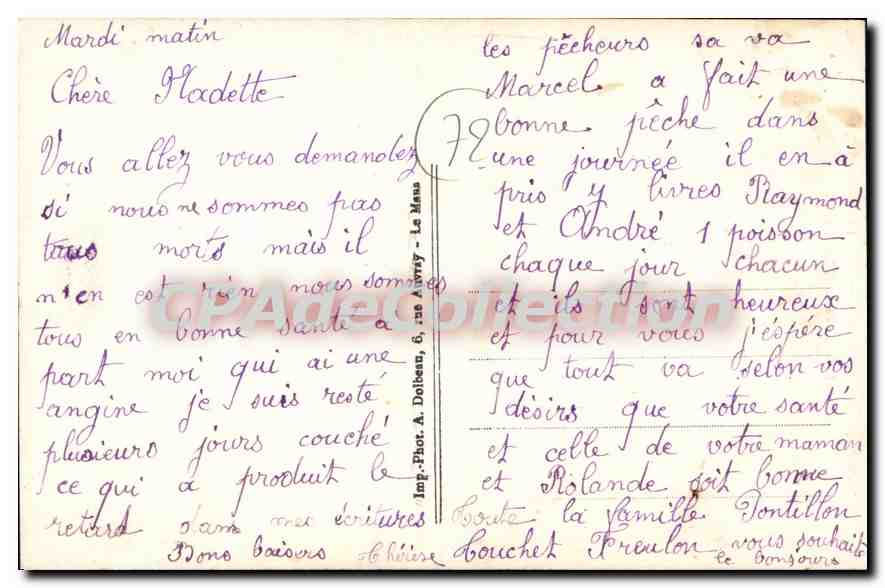 Mardi matin
Chère Madette
Vous allez vous demandez
si nous ne sommes pas
tous morts mais il
n'en est rien nous sommes
tous en bonne santé a
part moi qui ai une
angine je suis resté
plusieurs jours couché
ce qui a produit le
retard dans mes écritures
Bons baisers Thérèse
Imp.-Phot. A. Dolbeau, 6, rue Auvray - Le Mans
72
les pêcheurs sa va
Marcel a fait une
bonne pêche dans
une journée il en à
pris 4 livres Raymond
et André 1 poisson
chaque jour chacun
et ils sont heureux
et pour vous j'éspére
que tout va selon vos
désirs que votre santé
et celle de votre maman
et Rolande soit bonne
Toute la famille Pontillon
Touchet Freulon vous souhaite
le bonjours
CPAdeCollection